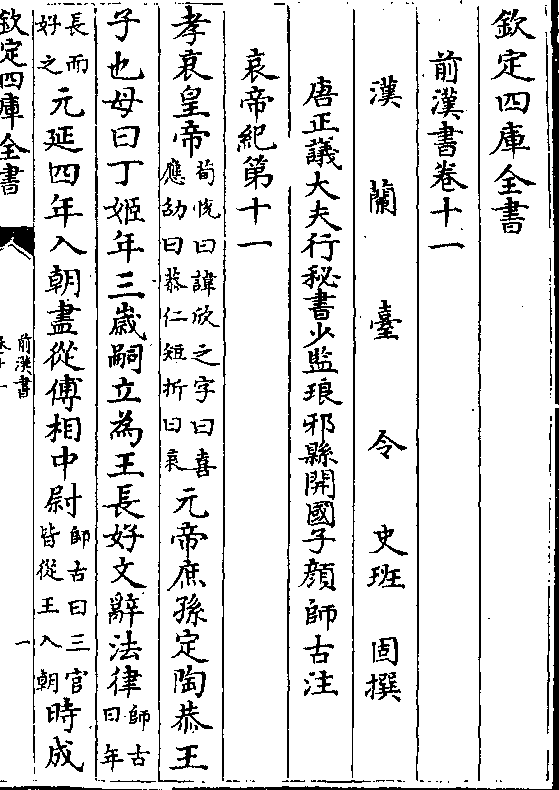 欽定四庫全書
前漢書卷十一
漢蘭臺令史班固撰
唐正議大夫行秘書少監琅邪縣開國子顔師古注
哀帝紀第十一
孝哀皇帝荀悅曰諱欣之字曰喜應劭曰恭仁短折曰哀元帝庶孫定陶恭王
子也母曰丁姬年三歲嗣立為王長好文辭法律師古曰年
長而好之元延四年入朝盡從傅相中尉師古曰三官皆從王入朝時成
欽定四庫全書
前漢書
卷十一
一